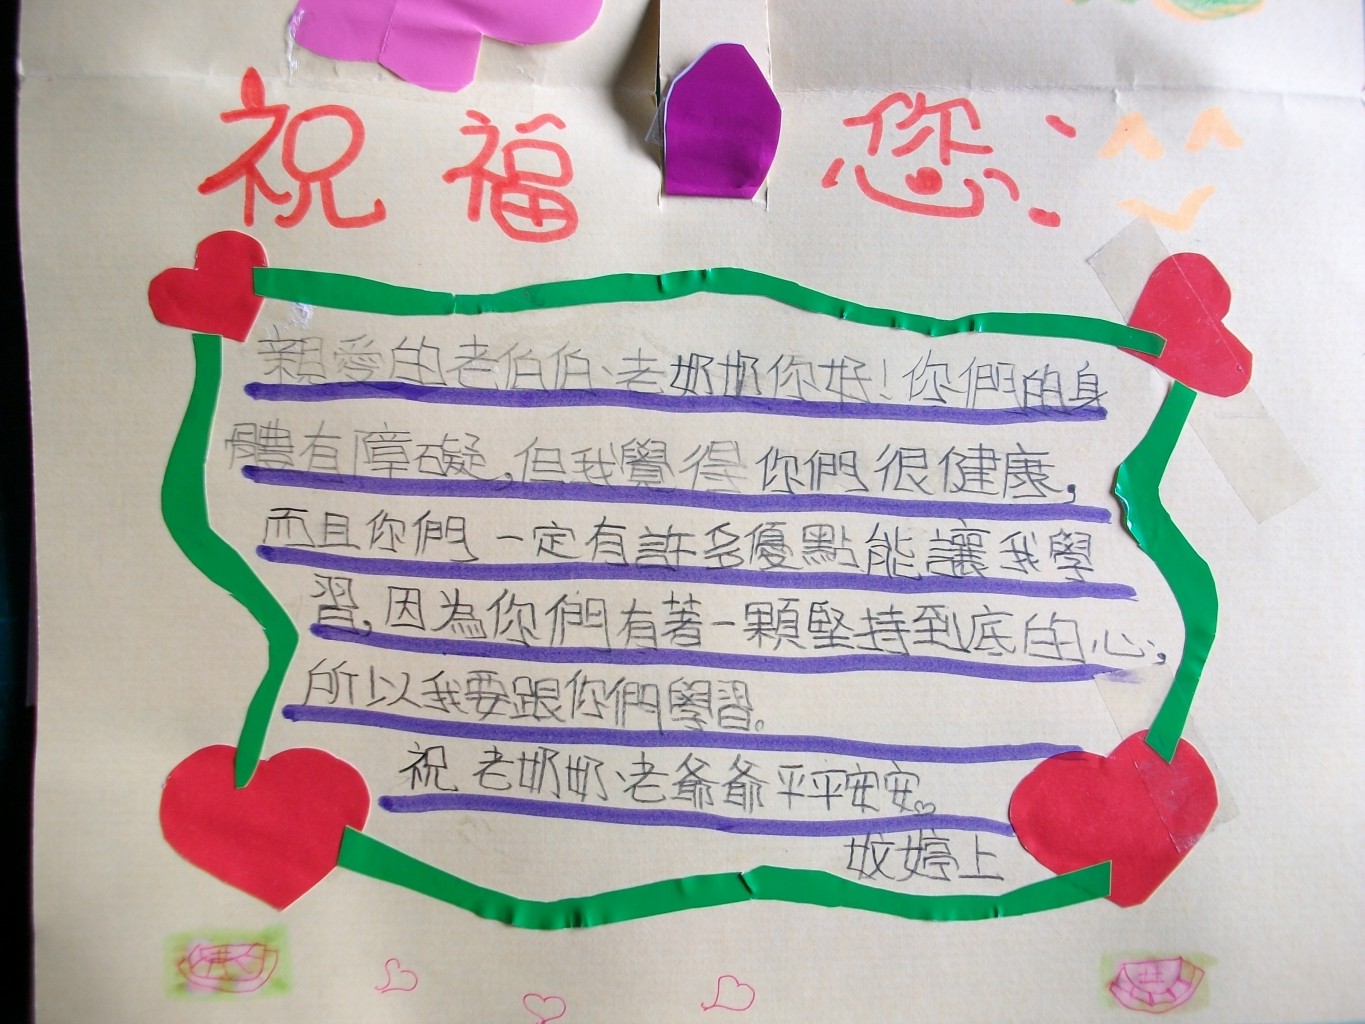 祝福您：
親愛的老伯伯、老奶奶你好！你們的身
體有障礙，但我覺得你們很健康，
而且你們一定有許多優點能讓我學
習，因為你們有著一顆堅持到底的心，
所以我要跟你們學習。
祝老奶奶、老爺爺平平安安。
妏婷上